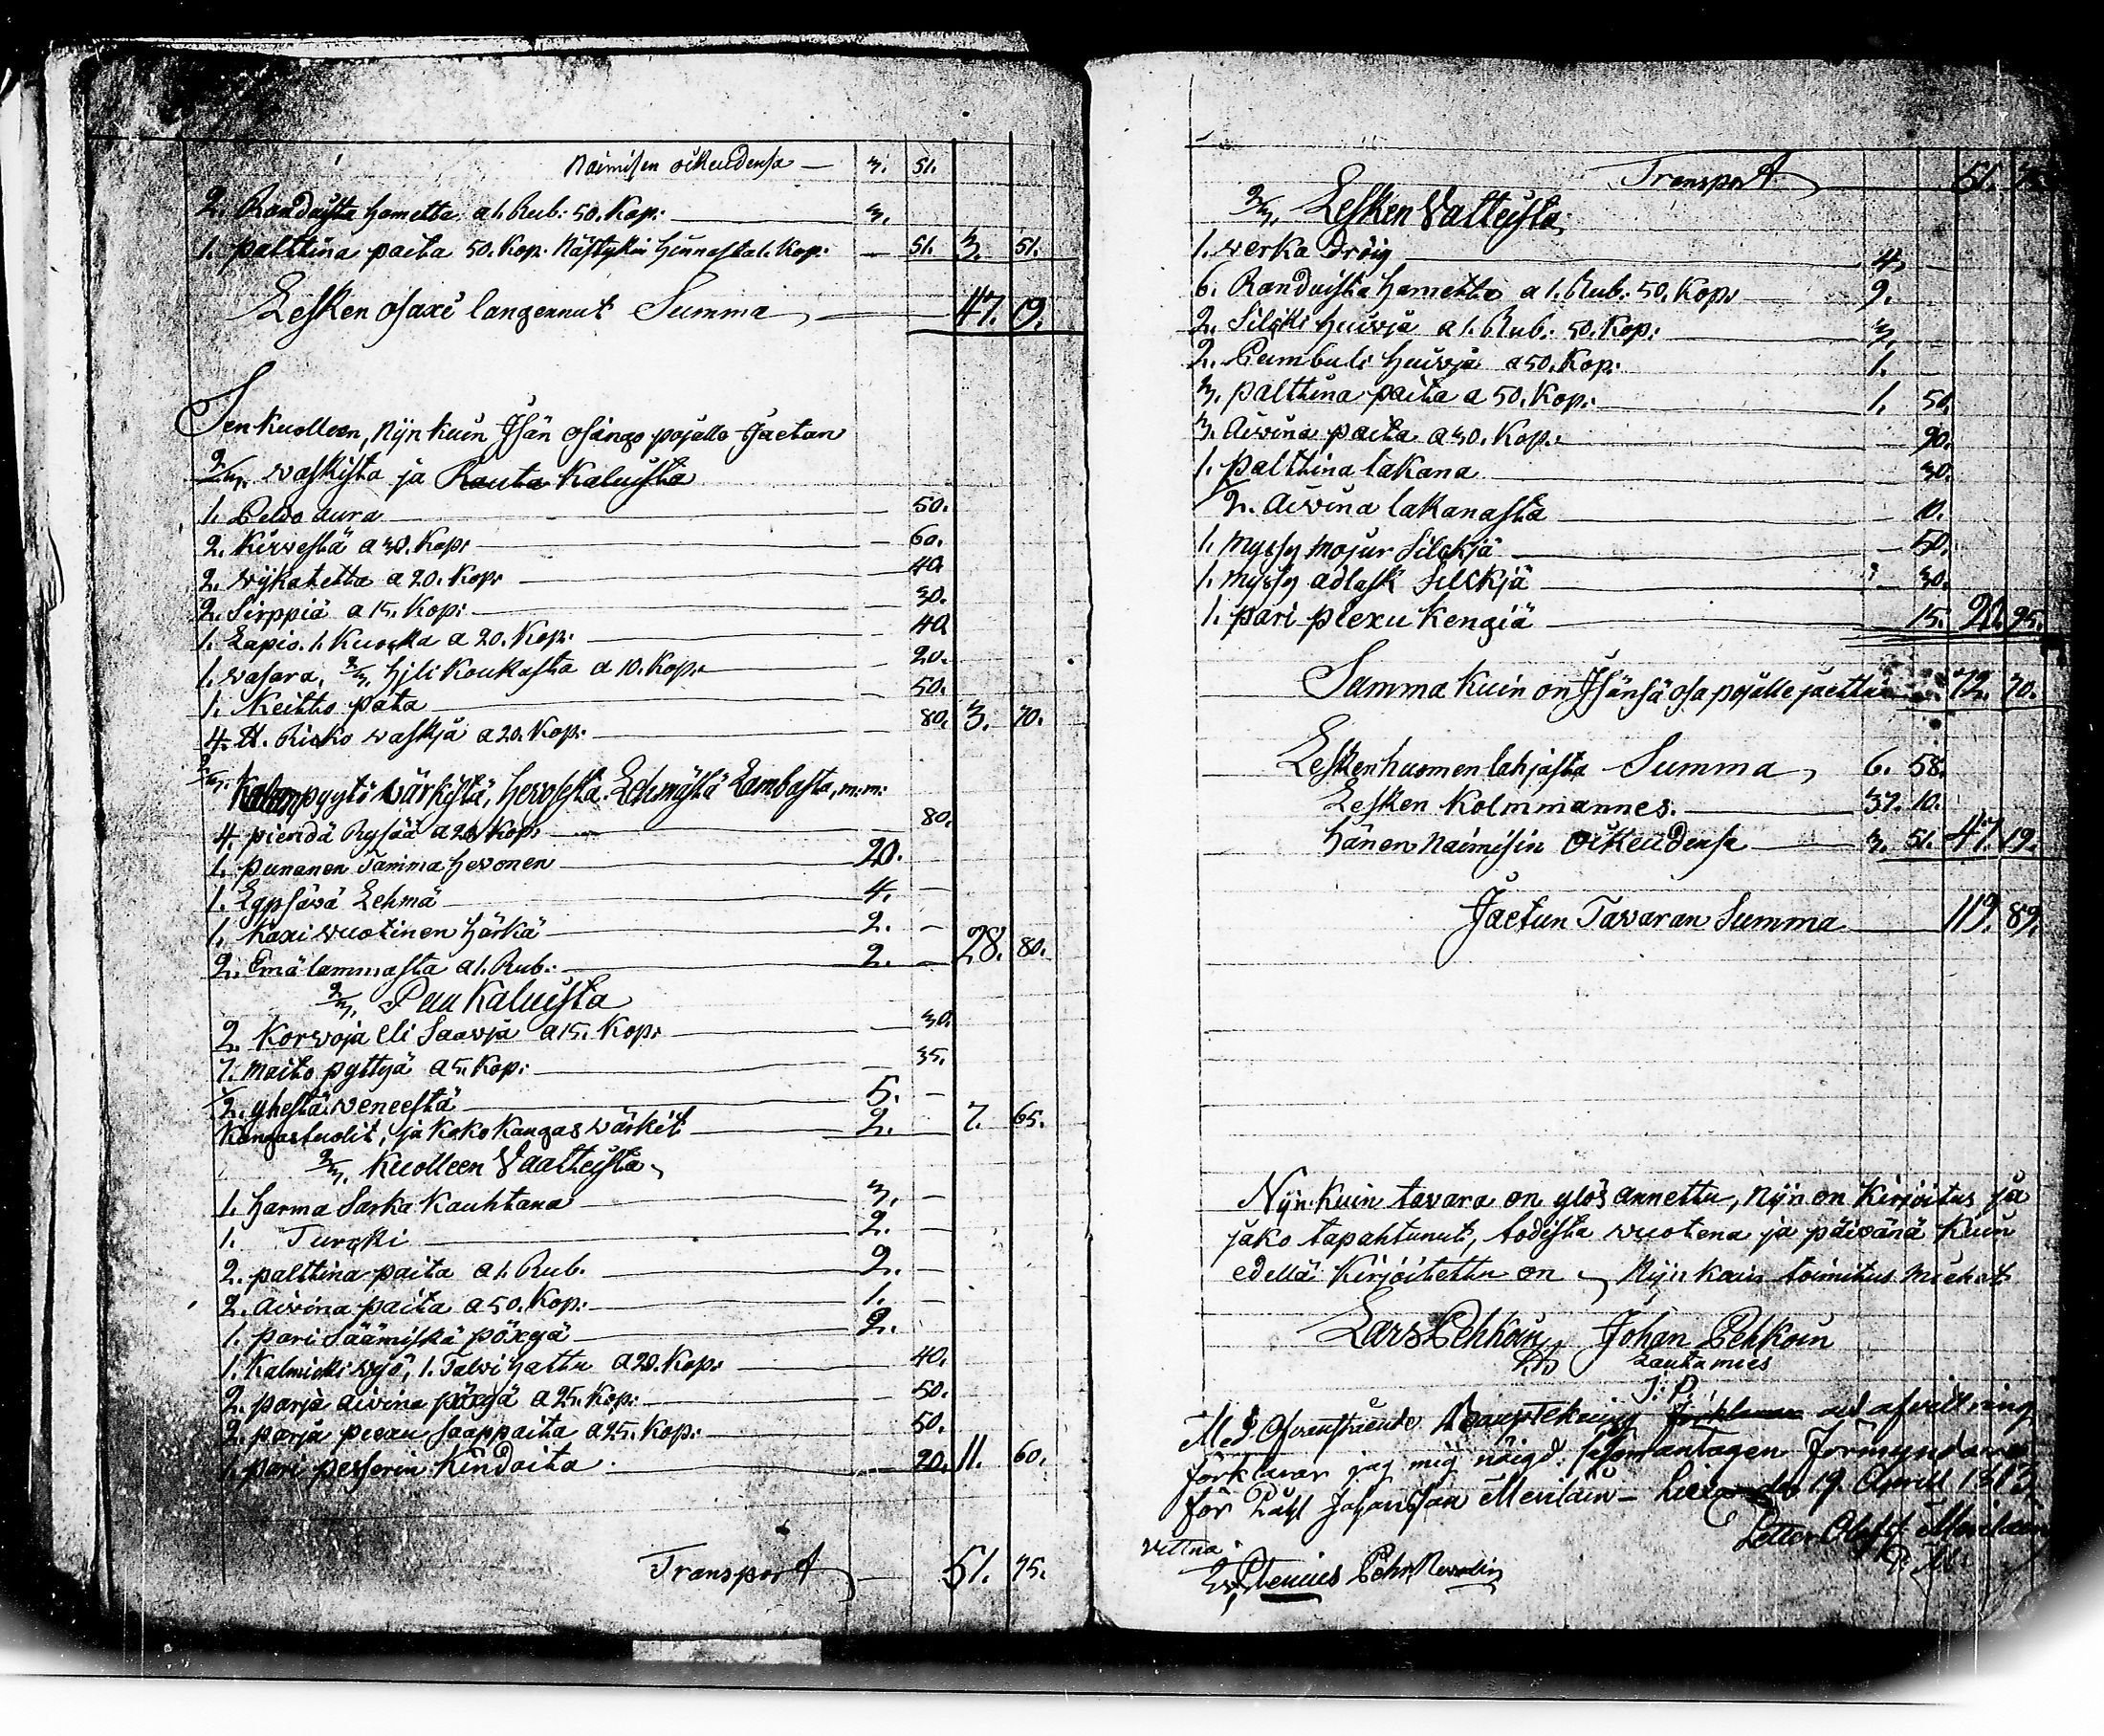 Naimisen oikeudensa — 3. 51.
2. Randuista hametta a 1. Rub: 50. Kop: — 3.
1. palttina paita 50. Kop: Nästykin hinnasta 1. Kop: — 51. 3. 51.
Lesken osaxi langennut Summa — 47. 19.
Sen Kuolleen, Nijn kuin Isän osingo pojalle Jaetan
2/3. waskista ja Rauta Kaluista
1. Peldo aura — 50.
2. Kirwestä a 30. Kop: — 60.
2. wijkatetta a 20. Kop: — 40.
2. Sirppiä a 15. Kop: — 30.
1. Lapio. 1. Kuocka a 20. Kop: — 40.
1. wasara, 2/3. hjli Koukusta a 10. Kop: — 20.
1. Keitto pata — 50.
4. ℔. Ricko waskja a 20. Kop: — 80. 3. 70.
2/3. Kalanpyytö wärkistä, hewosesta. Lehmästä Lambasta, m:m:
4. pieridä Rysää a 20 Kop: — 80.
1. punanen Tamma hevonen — 20.
1. Lypsävä Lehmä — 4. —
1. Kaxi wuotinen härkä — 2. —
2. Emä lammasta a 1. Rub: — 2. — 28. 80.
2/3. Puu Kaluista
2. Korwoja eli Saavja a 15. Kop: — 30.
7. maito pyttyä a 5. Kop: — 35.
1/2. yhestä weneestä — 5. —
Kangastuolit, ja Koko Kangas wärkit — 2. 7. 65.
2/3. Kuolleen Vaatteista
1. harma Sarka Kauhtana — 3. —
1. Turcki — 2. —
2. palttina paita a 1. Rub. — 2. —
2. aiwina paita a 50. Kop: — 1. —
1. pari Säämiskä pöxyä — 2.
1. Kalmicki wyö, 1. Talwi hattu a 20. Kop: — 40.
2. parja aiwina pöxyä a 25. Kop: — 50.
2. parja piexu saappaita a 25. Kop: — 50.
1. pari pesserin Kindaita — 20. 11. 60.
Transport — 51. 75.
Transport — 51. 75.
2/3. Lesken Vatteista
1. werka dröiy — 4. —
6. Randuista hametta a 1. Rub: 50. Kop: — 9.
2. Silcki huivja a 1. Rub: 50. Kop: — 3.
2. Pumbuli huivja a 50. Kop: — 1. —
3. palttina paita a 50. Kop: — 1. 50.
3. Aiwina paita a 30. Kop: — 90.
1. palttina lakana — 30.
1/2. aiwina lakanasta — 10.
1. myssy mojur Silckjä — 50.
1. myssy adlask Silckjä — 30.
1. pari piexu Kengiä — 15. 20. 95.
Summa kuin on Isänsä osa pojalle jaettu — 72. 70.
Lesken huomen lahjasta Summa — 6. 58.
Lesken Kolmmannes. — 37. 10.
hänen Naimisin oikeudensa — 3. 51. 47. 19.
Jaetun Tavaran Summa — 119. 89.
Nijn kuin tavara on ylös annettu, Nijn on Kirjoitus ja
jako tapahtunut, todista wuotena ja päivänä kuin
edellä: Kirjoitettu on — Nijn kuin toimitus miehet
Lars Pehkoin Johan Pehkoin
Lautamies
I: P.
Med Ofvanstående ad afvittning
förklarar jag mig nöigd. Förmyndare
för Påhl Johansson Meriläin — 19. Aprill 1813
Petter Meriläin
P. M:
Vittna